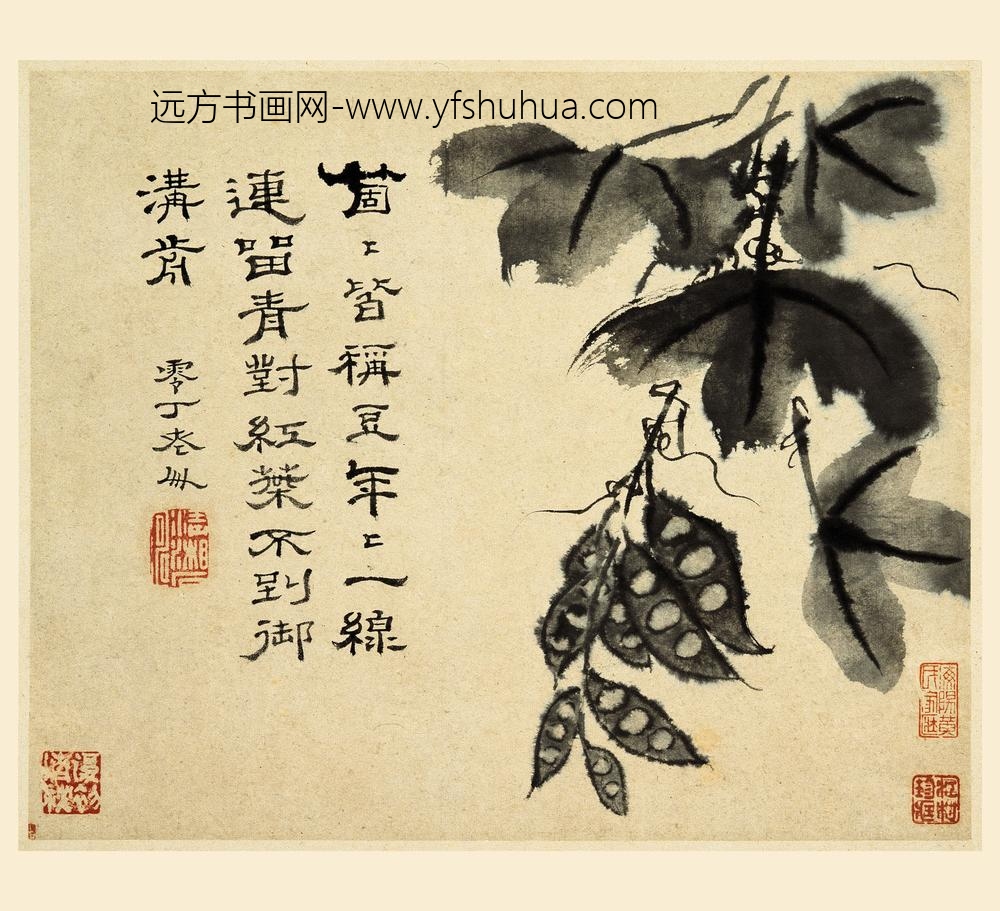 远方书画网-www.yfshuhua.com
箇〻皆稱豆年〻一線
連留青對紅葉不到御
溝前
零丁老